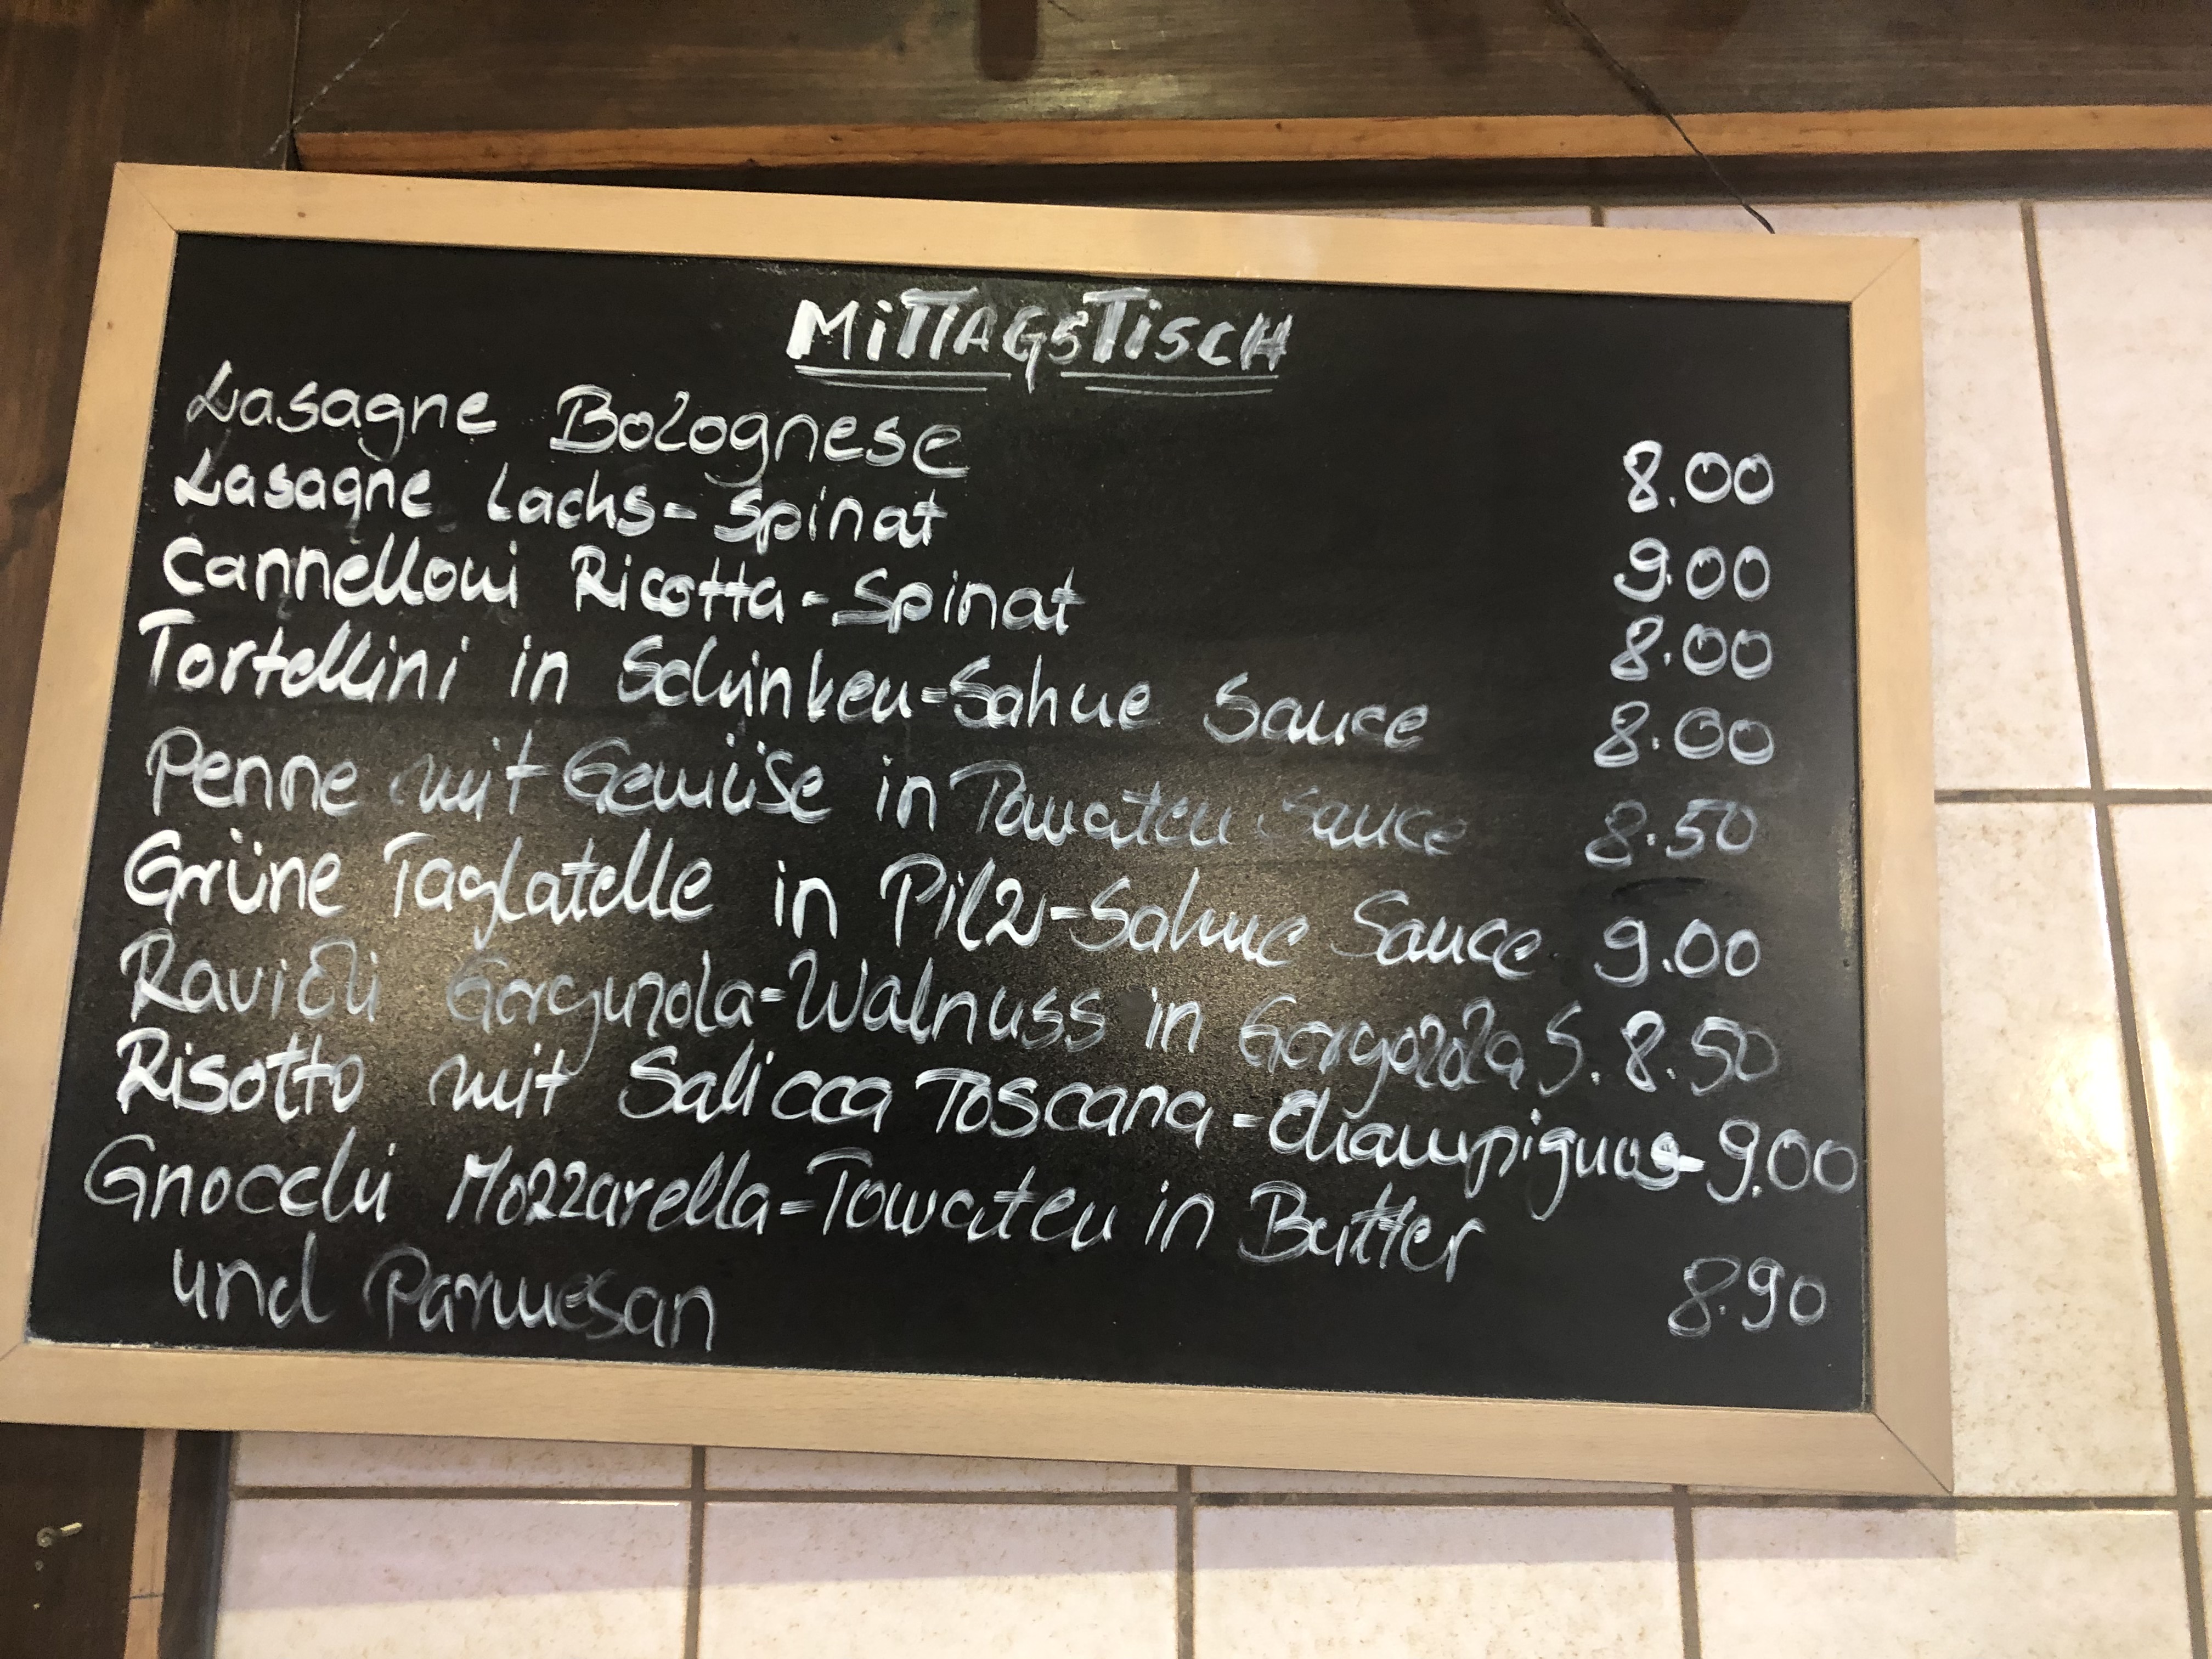 MITTAGSTISCH
Lasagne Bolognese 8.00
Lasagne Lachs-Spinat 9.00
Cannelloni Ricotta-Spinat 8.00
Tortellini in Schinken-Sahne Sauce 8.00
Penne mit Gemüse in Tomaten Sauce 8.50
Grüne Taglatelle in Pilz-Sahne Sauce 9.00
Ravioli Gorgunzola-Walnuss in Gorgozola S. 8.50
Risotto mit Salicca Toscana-Champignos 9.00
Gnocchi Mozzarella-Tomaten in Butter
und Parmesan 8.90